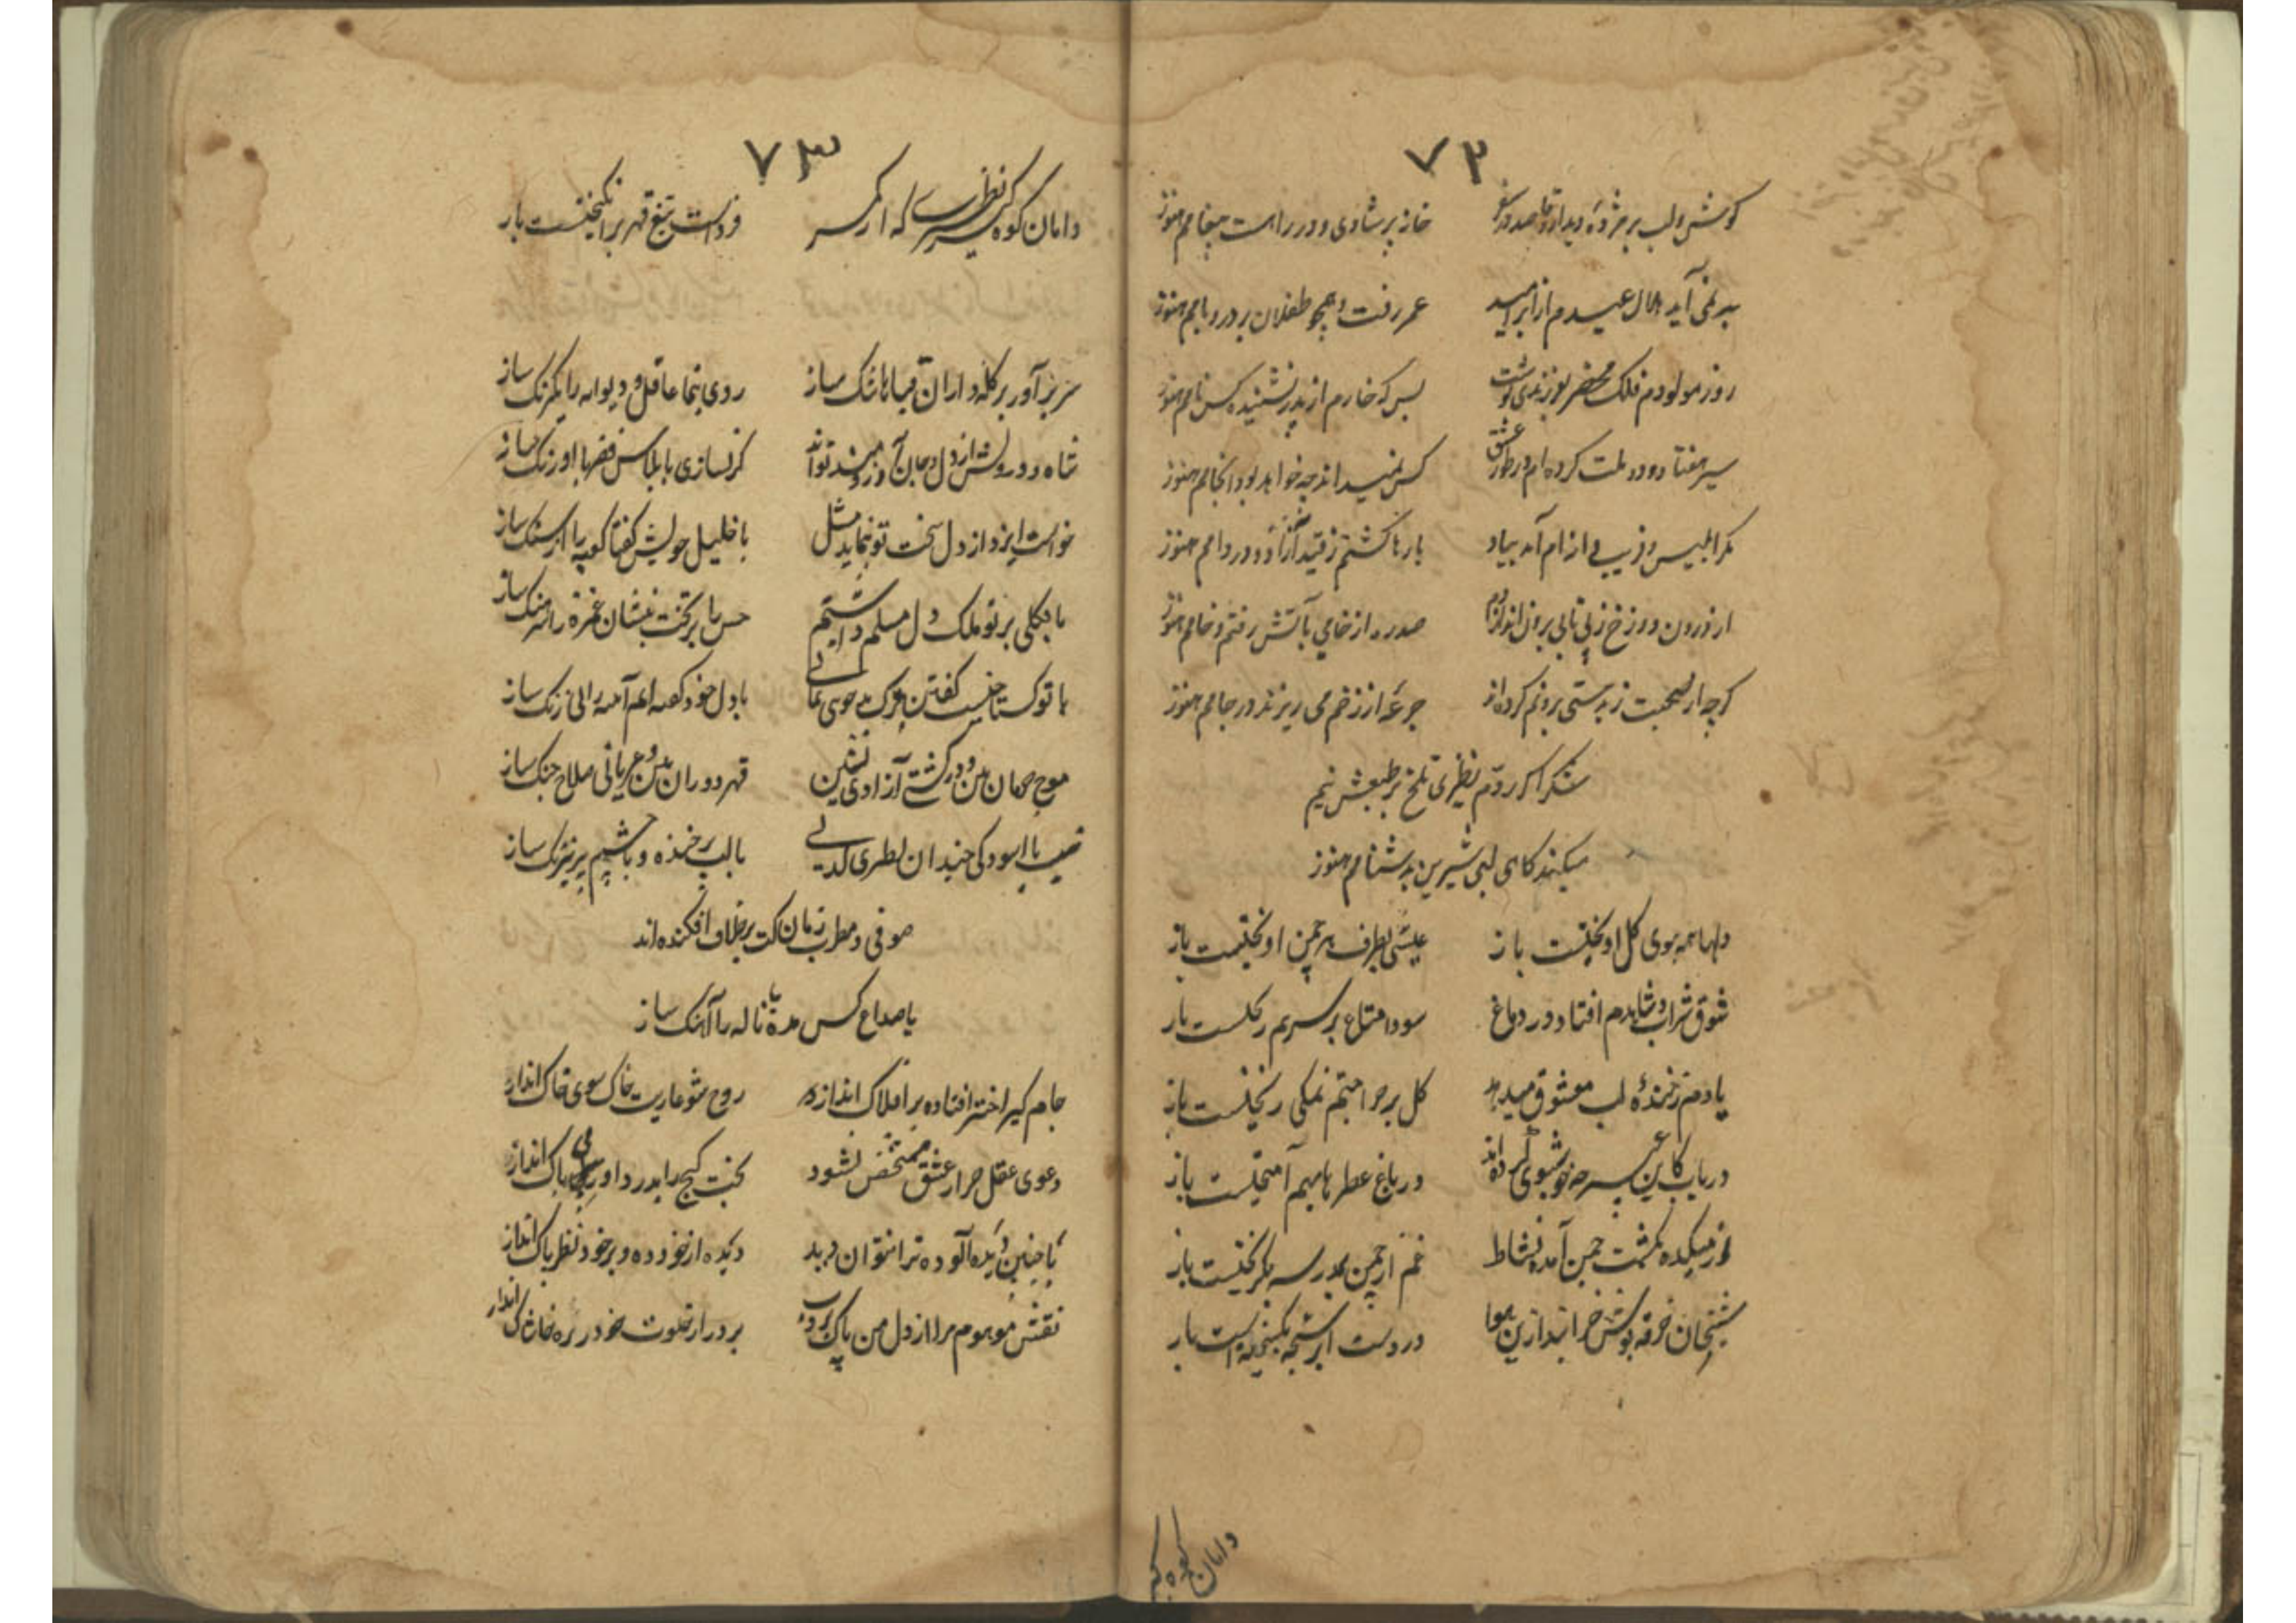 ۷۲
کوش ولب بر مژدهٔ دیدار و قاصد در سفر خانه پر شادی و در راهست پیغامم هنوز
بر نمی آید هلال عیدم از ابر امید عمر رفت و همچو طفلان بر در و بامم هنوز
روز مولودم فلک محضر بفرزندی نوشت بس که خوارم از پدر نشنیده کس نامم هنوز
سیر هفتاد و دو ملت کرده ام در طور عشق کس نمیداند چه خواهد بود انجامم هنوز
مکر ابلیس و فریب دانه از ام آمد بیاد بارها کشتم ز قید آزاد و در دامم هنوز
از درون دوزخ ز بی تابی برون انداز دم صد ره از خامی بآتش رفتم و خامم هنوز
کرچه از صحبت ز بدمستی برونم کرده اند جرعه از زخم می ریزند در جامم هنوز
شکر اکر ردّم نظیری تلخ بر طبعش نیم
میکند کامی لبی شیرین بدشنامم هنوز
دلها همه بوی کل اویخست باز عیشی بطرف هر چمن اویخست باز
شوق شراب و شاهدم افتاد در دماغ سودا متاع بر سرم ریخست باز
یادم ز خندهٔ لب معشوق میدهد کل بر جراحتم نمکی ریخست باز
دریاب کاین عبیر چه خوشبوی کرده اند در باغ عطرها بهم آمیخست باز
از میکده بکشت چمن آمد نشاط غم از چمن بمدرسه بکریخست باز
شنجان خرقه پوش خراند ازین هوا در دست ابر سبحه بکسیخه است باز
دامان کوه کیر
۷۳
دامان کوه کیر نظیری که از کمر فرداست تیغ قهر برانکیخست باز
سر برآور بر کله داران قباها تنک ساز روی بنما عاقل و دیوانه را یکرنک ساز
شاه و درویش از دل و جان آرزومند تواند کر نسازی با پلاس فقر با اورنک ساز
خواست ایزد از دل سخت تو بنماید مثل با خلیل خویش کفتا کعبه را از سنک ساز
ما بکلی بر تو ملک دل مسلم داشتیم حسن را بر تخت بنشان غمزه را سرهنک ساز
با تو کستاخیست کفتن ترک بد خوی نمای با دل خود کفته ام آئینه را بی زنک ساز
موج حرمان بین و در کشتی آزادی نشین قهر دوران بین و عریانی سلاح جنک ساز
عیب با آسودکی چندان نظیری کی با لب پرخنده و با چشم پر نیرنک ساز
صوفی و مطرب زمان کت بر خلاف افکنده اند
با صداع کس مده یا ناله را آهنک ساز
جام کیر اختر افتاده بر افلاک انداز روح شو عاریت خاک سوی خاک انداز
دعوی عقل جز از عشق مشخص نشود بخت کیج را بدر داور بی باک انداز
با چنین دیدهٔ آلوده ترا نتوان دید دیده از خود ده و بر خود نظر پاک انداز
نقش موهوم مرا از دل من پاک بروب بر در از خلوت خود در ره خاشاک انداز